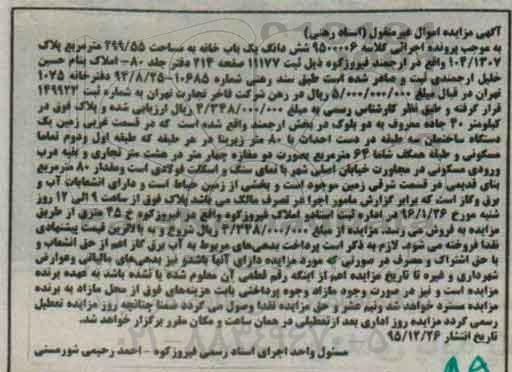 آگهی مزایده اموال غیرمنقول (اسناد رهنی)
به موجب پرونده اجرائی کلاسه ۹۵۰۰۰۰۶ شش دانگ یک باب خانه به مساحت ۲۹۹/۵۵ مترمربع پلاک
۱۰۴/۱۳۰۷ واقع در ارجمند فیروزکوه ذیل ثبت ۱۱۱۷۷ صفحه ۲۱۳ دفتر جلد ۸۰- املاک بنام حسین
خلیل ارجمندی ثبت و صادر شده است طبق سند رهنی شماره ۱۰۶۸۵-۹۴/۸/۲۵ دفترخانه ۱۰۷۵
تهران در قبال مبلغ ۵/۰۰۰/۰۰۰/۰۰۰ ریال در رهن شرکت فاخر تجارت تهران به شماره ثبت ۱۴۹۹۲۲
قرار گرفته و طبق نظر کارشناس رسمی به مبلغ ۴/۳۴۸/۰۰۰/۰۰۰ ریال ارزیابی شده و پلاک فوق در
کیلومتر ۴۰ جاده معروف به دو بلوک در بخش ارجمند واقع شده است که در قسمت غربی زمین یک
دستگاه ساختمان سه طبقه در دست احداث با ۸۰ متر زیربنا در هر طبقه که طبقه اول ودوم تماما
مسکونی و طبقه همکف شاملا ۶۳ مترمربع بصورت دو مغازه چهار متر در هشت متر تجاری و بقیه درب
ورودی مسکونی در مجاورت خیابان اصلی شهر با نمای سنگ و اسکلت فولادی است ومقدار ۸۰ مترمربع
بنای قدیمی در قسمت شرقی زمین موجود است و بخشی از زمین حیاط است و دارای انشعابات آب و
برق وگاز است که برابر گزارش مامور اجرا در تصرف مالک می باشد پلاک فوق از ساعت ۹ الی ۱۲ روز
شنبه مورخ ۹۶/۱/۲۶ در اداره ثبت اسنادو املاک فیروزکوه واقع در فیروزکوه خ ۴۵ متری از طریق
مزایده به فروش می رسد. مزایده از مبلغ ۴/۳۴۸/۰۰۰/۰۰۰ ریال شروع و به بالاترین قیمت پیشنهادی
نقدا فروخته می شود. لازم به ذکر است پرداخت بدهی‌های مربوط به آب برق گاز اعم از حق انشعاب و
یا حق اشتراک و مصرف در صورتی که مورد مزایده دارای آنها باشدو نیز بدهی‌های مالیاتی وعوارض
شهرداری و غیره تا تاریخ مزایده اعم از اینکه رقم قطعی آن معلوم شده یا نشده باشد به عهده برنده
مزایده است و نیز در صورت وجود مازاد وجوه پرداختی بابت هزینه‌های فوق از محل مازاد به برنده
مزایده مسترد خواهد شد ونیم عشر و حق مزایده نقدا وصول می گردد ضمنا چنانچه روز مزایده تعطیل
رسمی گردد مزایده روز اداری بعد ازتعطیلی در همان ساعت و مکان مقرر برگزار خواهد شد.
تاریخ انتشار ۹۵/۱۲/۲۶
مسئول واحد اجرای اسناد رسمی فیروزکوه - احمد رحیمی شورمستی